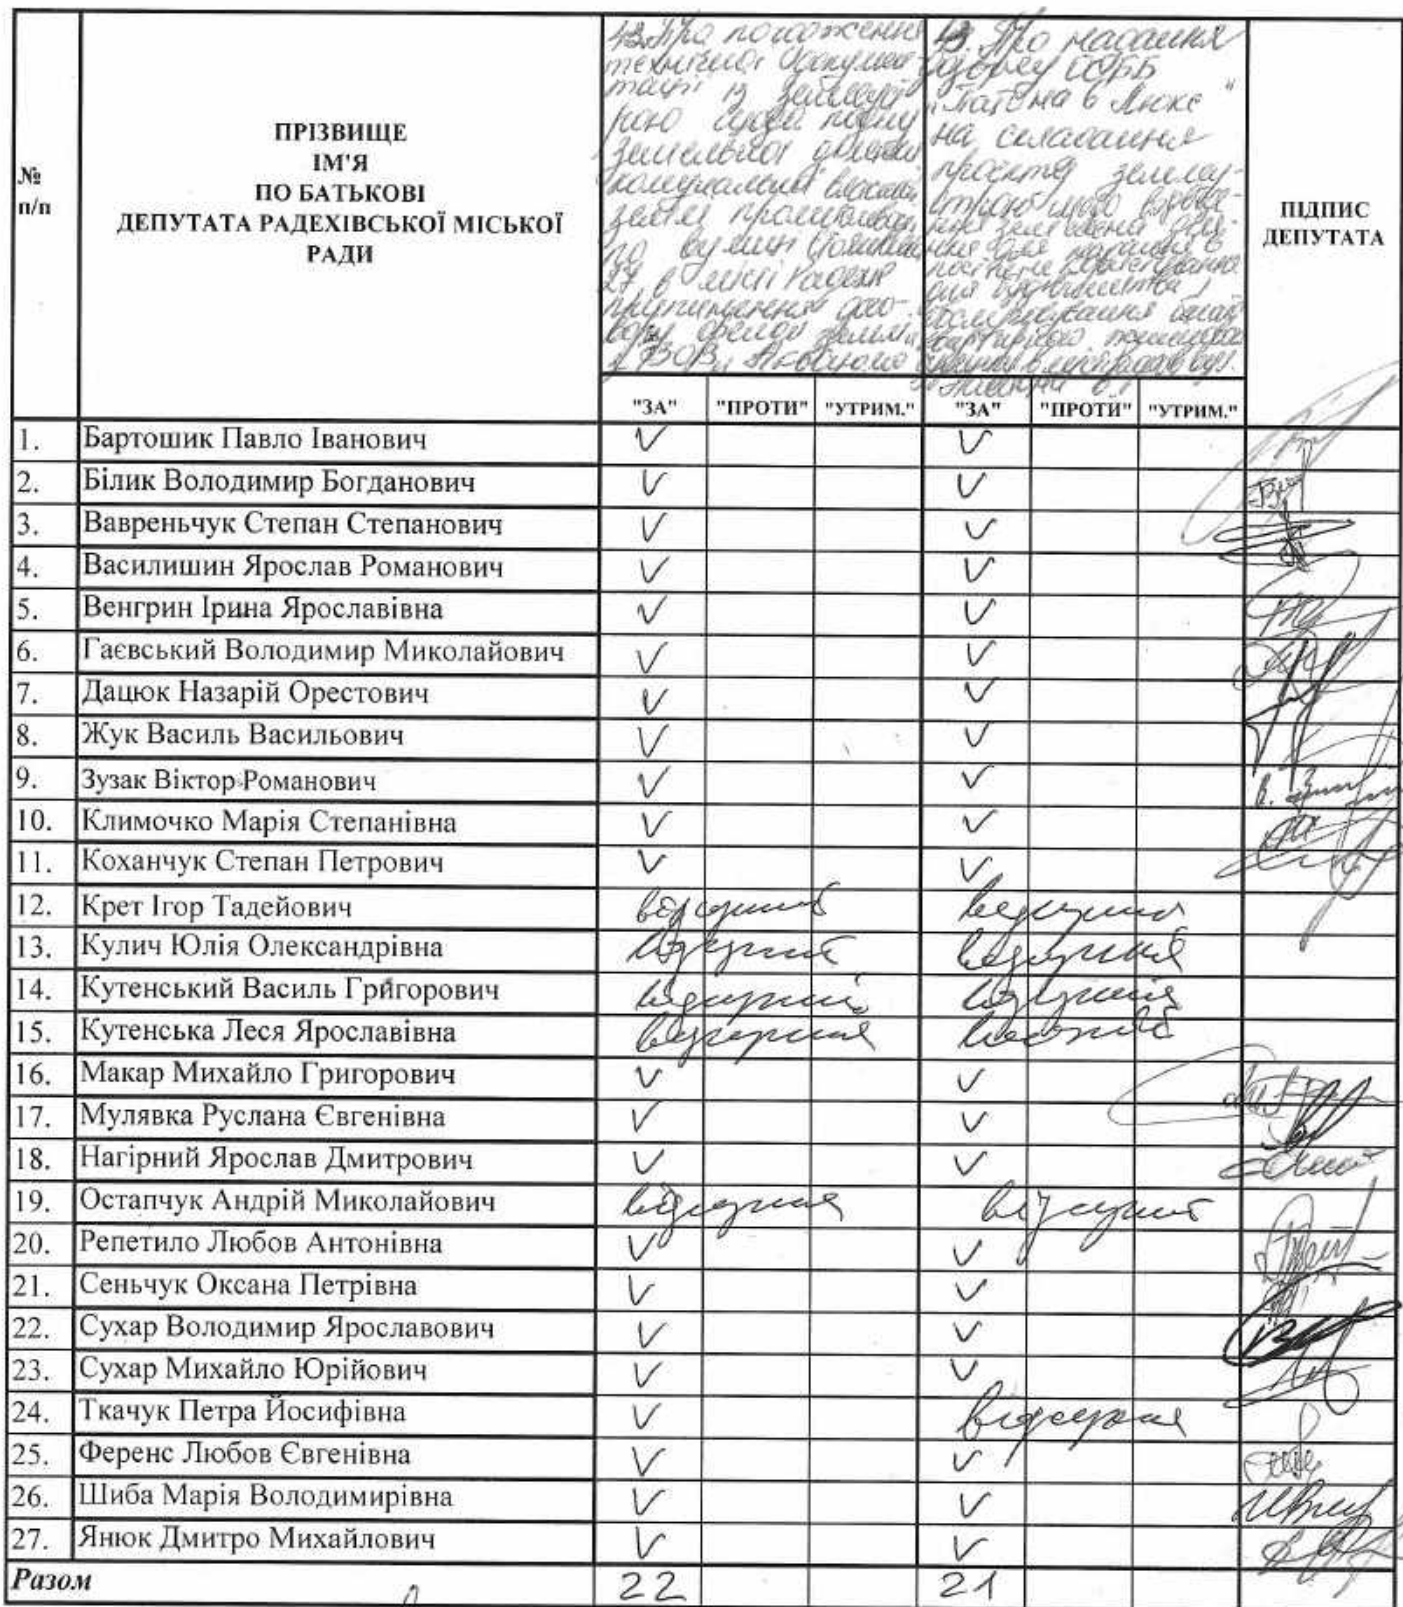 №
п/п
ПРІЗВИЩЕ
ІМ'Я
ПО БАТЬКОВІ
ДЕПУТАТА РАДЕХІВСЬКОЇ МІСЬКОЇ
РАДИ
Про погодження
технічної документації
із землеустрою щодо поділу
земельної ділянки
комунальної власності
землі промисловості
по вулиці
27 в місті Радехів
припинення договору оренди землі
Про надання
дозволу ОСББ
на складання
проекту землеустрою щодо
ПІДПИС
ДЕПУТАТА
"ЗА" "ПРОТИ" "УТРИМ." "ЗА" "ПРОТИ" "УТРИМ."
1. Бартошик Павло Іванович V V
2. Білик Володимир Богданович V V
3. Вавреньчук Степан Степанович V V
4. Василишин Ярослав Романович V V
5. Венгрин Ірина Ярославівна V V
6. Гаєвський Володимир Миколайович V V
7. Дацюк Назарій Орестович V V
8. Жук Василь Васильович V V
9. Зузак Віктор Романович V V
10. Климочко Марія Степанівна V V
11. Коханчук Степан Петрович V V
12. Крет Ігор Тадейович відсутній відсутній
13. Кулич Юлія Олександрівна відсутня відсутня
14. Кутенський Василь Григорович відсутній відсутній
15. Кутенська Леся Ярославівна відсутня відсутня
16. Макар Михайло Григорович V V
17. Мулявка Руслана Євгенівна V V
18. Нагірний Ярослав Дмитрович V V
19. Остапчук Андрій Миколайович відсутній відсутній
20. Репетило Любов Антонівна V V
21. Сеньчук Оксана Петрівна V V
22. Сухар Володимир Ярославович V V
23. Сухар Михайло Юрійович V V
24. Ткачук Петра Йосифівна V відсутня
25. Ференс Любов Євгенівна V V
26. Шиба Марія Володимирівна V V
27. Янюк Дмитро Михайлович V V
Разом 22 21